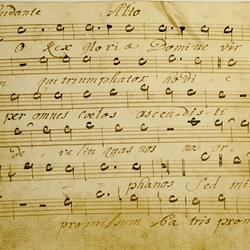 Andante Alto
O Rex gloriæ Domine vir
qui triumphator hodi e
per omnes cœlos ascendisti
de relin quas nos or
phanos Sed mit
promissum Patris prom